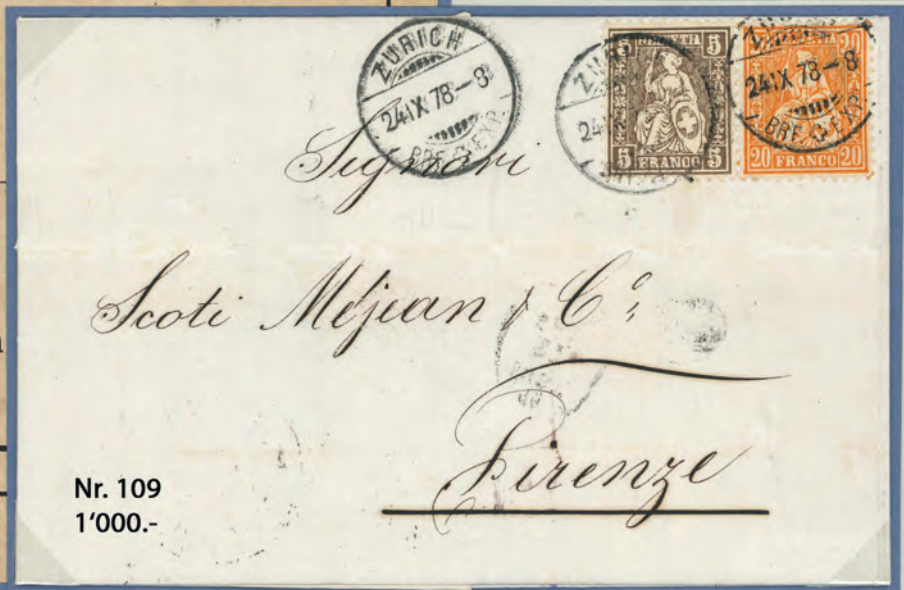 ZÜRICH
24 IX 78 – 8
BRF. EXP.
HELVETIA
5 5
5 FRANCO 5
ZÜ
24
ZÜ
24 IX 78 – 8
BRF. EXP.
20 FRANCO 20
Signori
Scoti Mejean & Cº,
Firenze
Nr. 109
1'000.-